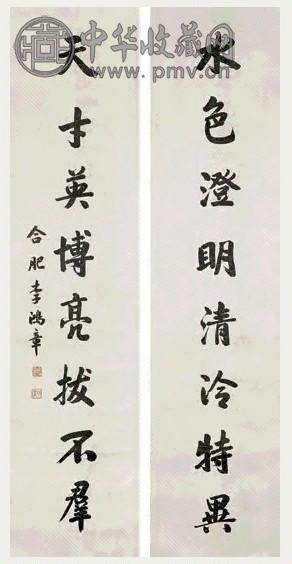 中华收藏网
www.pmv.cn
水色澄明清泠特異
天才英博亮拔不羣
合肥李鴻章